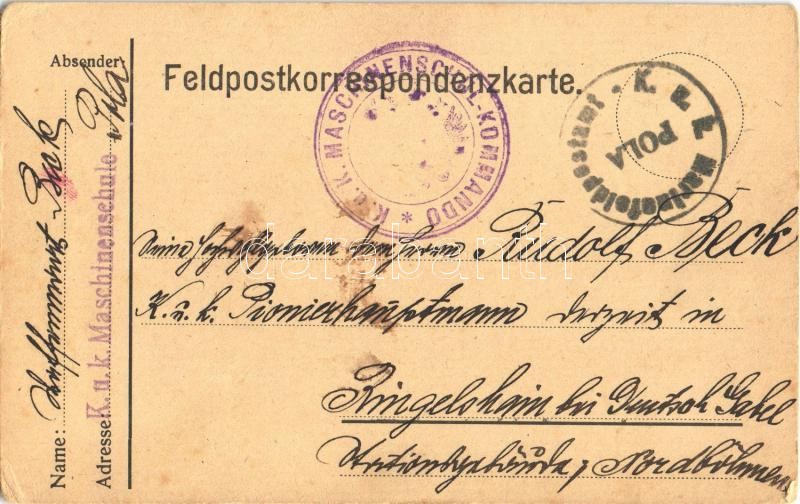 Feldpostkorrespondenzkarte.
K. u. K. MASCHINENSCHUL-KOMMANDO *
K. u. k. Marinefeldpostamt
POLA
Absender:
Name: Beck
Adresse: K. u. k. Maschinenschule Pola
Seine Hochwohlgeboren Herrn Rudolf Beck
K. u. k. Pionierhauptmann derzeit in
Ringelshain bei Deutsch Gabel
Stationsgebäude, Nordböhmen
darabanth